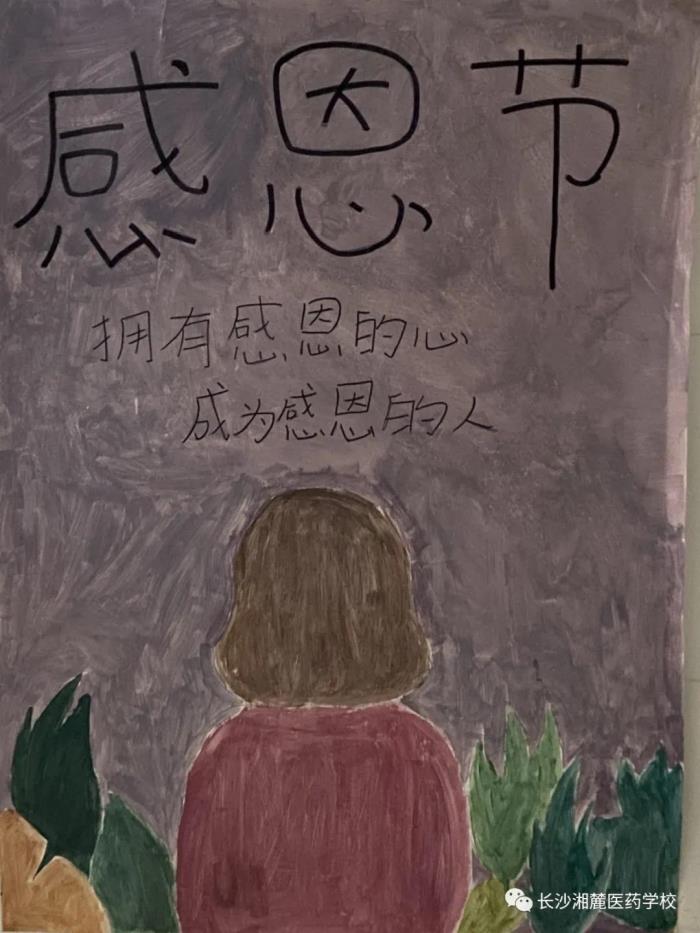 感恩节
拥有感恩的心
成为感恩的人
长沙湘麓医药学校